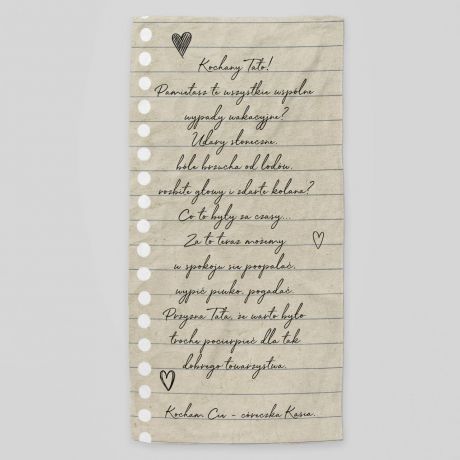 Kochany Tato!
Pamiętasz te wszystkie wspólne
wypady wakacyjne?
Udary słoneczne,
bóle brzucha od lodów,
rozbite głowy i zdarte kolana?
Co to były za czasy...
Za to teraz możemy
w spokoju się poopalać,
wypić piwko, pogadać.
Przyzna Tata, że warto było
trochę pocierpieć dla tak
dobrego towarzystwa.
Kocham Cię - córeczka Kasia.